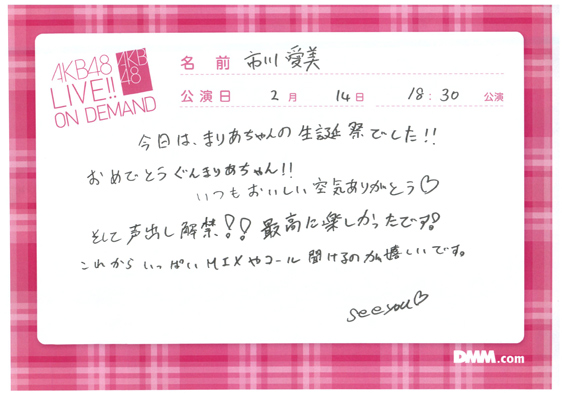 AKB48
LIVE!!
ON DEMAND
AKB
48
名 前 市川 愛美
公演日 2月 14日 18:30 公演
今日は、まりあちゃんの生誕祭でした!!
おめでとうぐんまりあちゃん!!
いつもおいしい空気ありがとう♡
そして声出し解禁!!最高に楽しかったです!
これからいっぱいMIXやコール聞けるのが嬉しいです。
see you♡
DMM.com